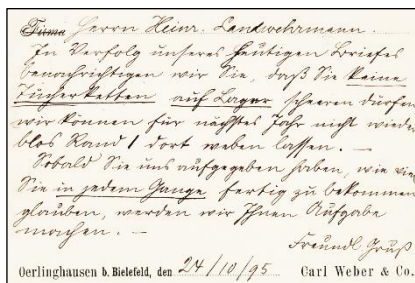 Firma Herrn Heinr. Landwehrmann.
In Verfolg unseres heutigen Briefes
benachrichtigen wir Sie, daß Sie keine
Tücherketten auf Lager scheeren dürfen
wir können für nächstes Jahr nicht wieder
blos Rand / dort weben lassen. —
Sobald Sie uns aufgegeben haben, wie viel
Sie in jedem Gange fertig zu bekommen
glauben, werden wir Ihnen Aufgabe
machen. —
Freundl. Gruß
Oerlinghausen b. Bielefeld, den 24/10/95 Carl Weber & Co.